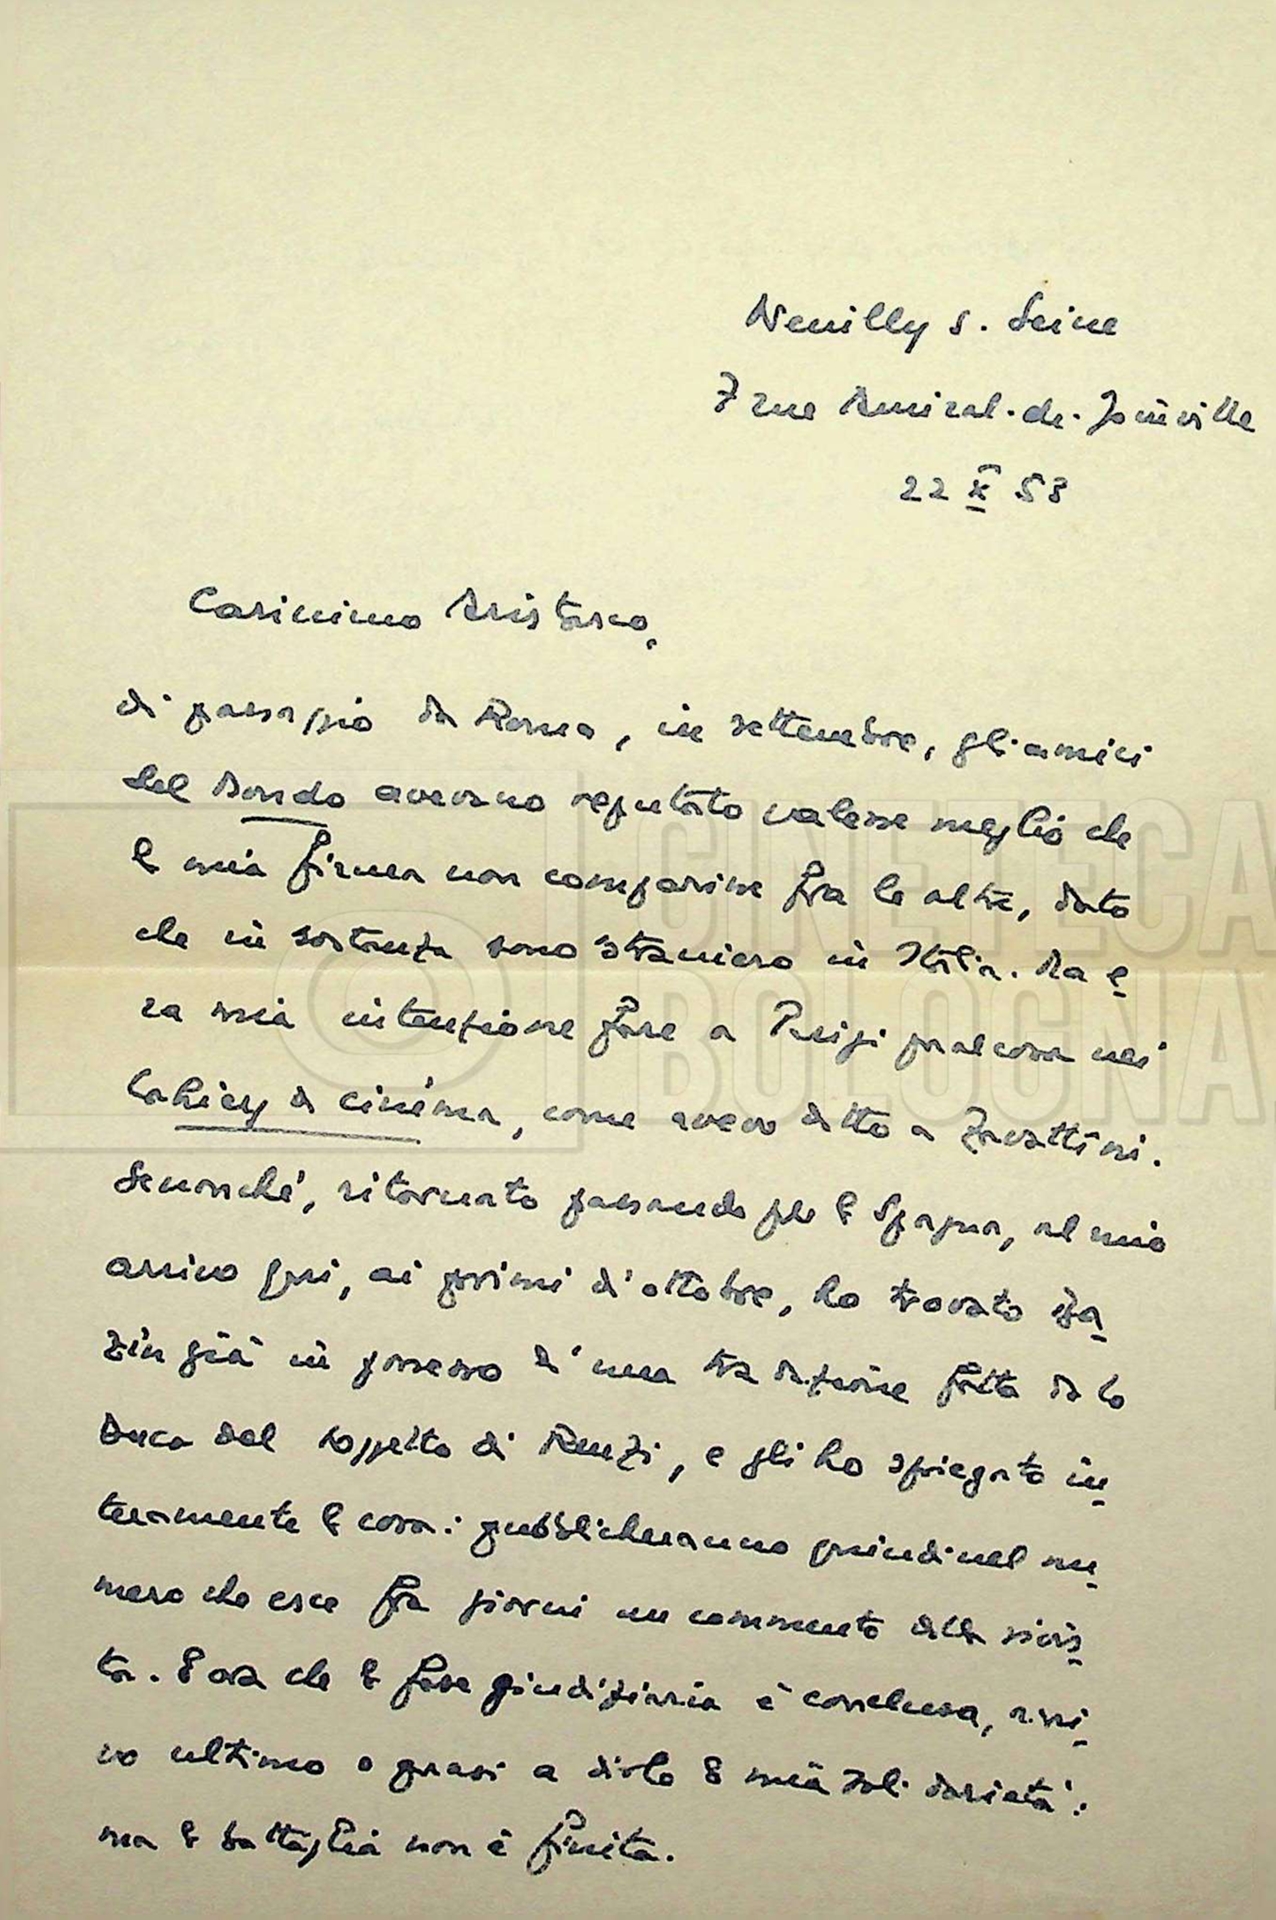 Neuilly s. Seine
7 rue Amiral-de-Joinville
22 X 53
Carissimo Aristarco,
di passaggio da Roma, in settembre, gli amici
del Mondo avevano reputato valesse meglio che
la mia firma non comparisse fra le altre, dato
che in sostanza sono straniero in Italia. Ma e
ra mia intenzione fare a Parigi qualcosa nei
Cahiers du cinéma, come avevo detto a Zavattini.
Senonché, ritornato passando per la Spagna, al mio
arrivo qui, ai primi d'ottobre, ho trovato Ba
zin già in possesso d'una traduzione fatta da Lo
Duca del soggetto di Renzi, e gli ho spiegato in
teramente la cosa: pubblicheranno quindi nel nu
mero che esce fra giorni un commento della rivis
ta. E ora che la fase giudiziaria è conclusa, arri
vo ultimo o quasi a dirle la mia solidarietà:
ma la battaglia non è finita.
CINETECA
BOLOGNA